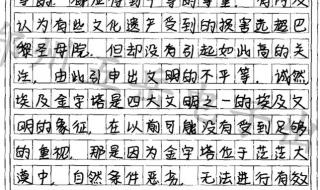 认为有些文化遗产受到的损害远超巴
黎圣母院，但却没有引起如此高的关
注，由此引申出文明的不平等。诚然
埃及金字塔是四大文明之一的埃及文
明的象征，在以前可能没有受到足够
的重视，那是因为金字塔位于茫茫大
漠中，自然条件恶劣，无法进行有效